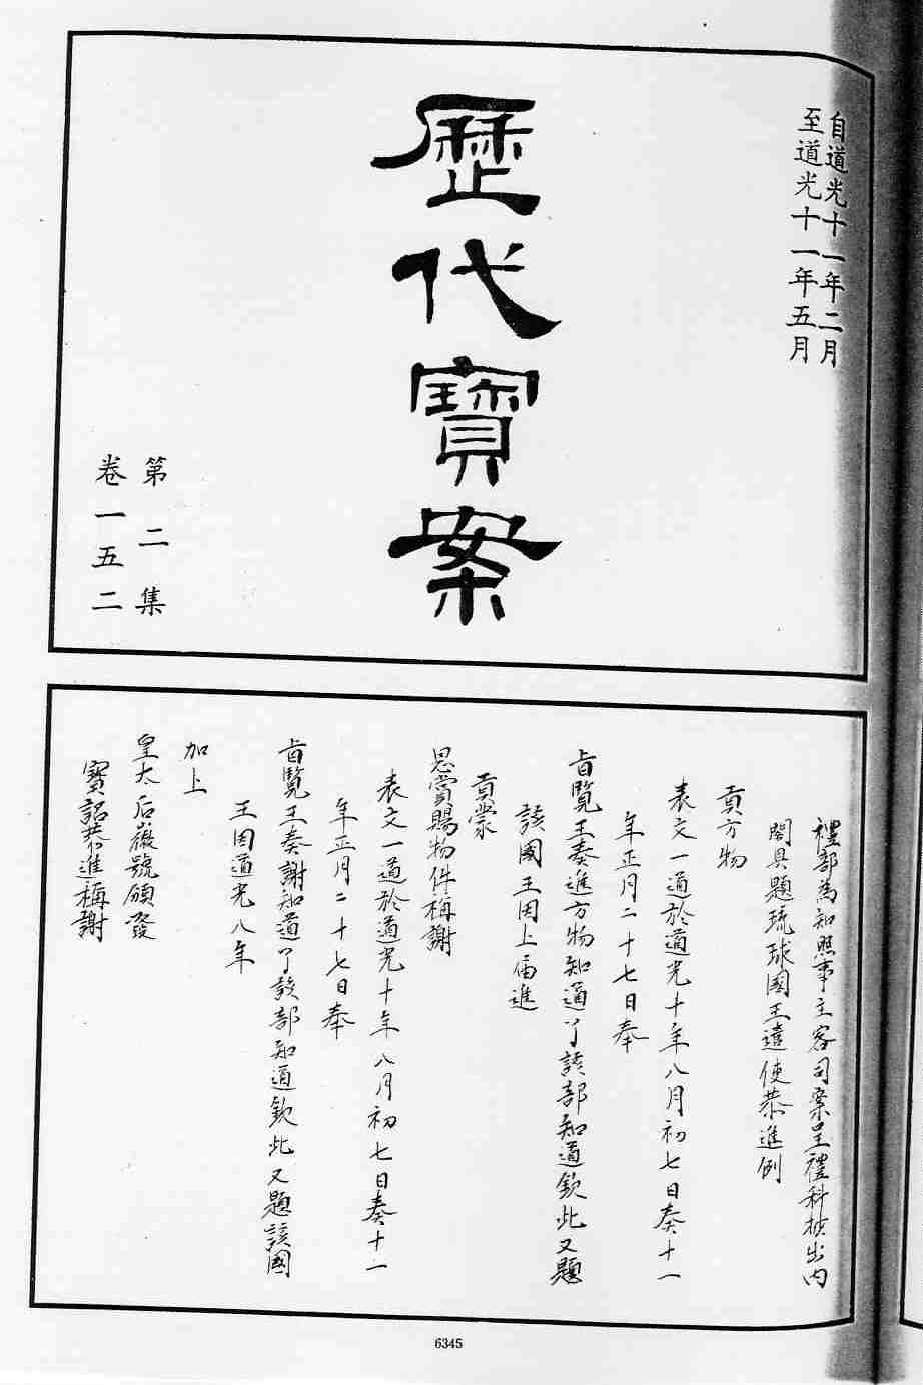 自道光十一年二月
至道光十一年五月
歷代寶案
第二集
卷一五二
禮部為知照事主客司案呈禮科抄出內
閣具題琉球國王遣使恭進例
貢方物
表文一道於道光十年八月初七日奏十一
年正月二十七日奉
旨覽王奏進方物知道了該部知道欽此又題
該國王因上屆進
貢蒙
恩賞賜物件稱謝
表文一道於道光十年八月初七日奏十一
年正月二十七日奉
旨覽王奏謝知道了該部知道欽此又題該國
王因道光八年
加上
皇太后徽號頒發
寶詔恭進稱謝
6345